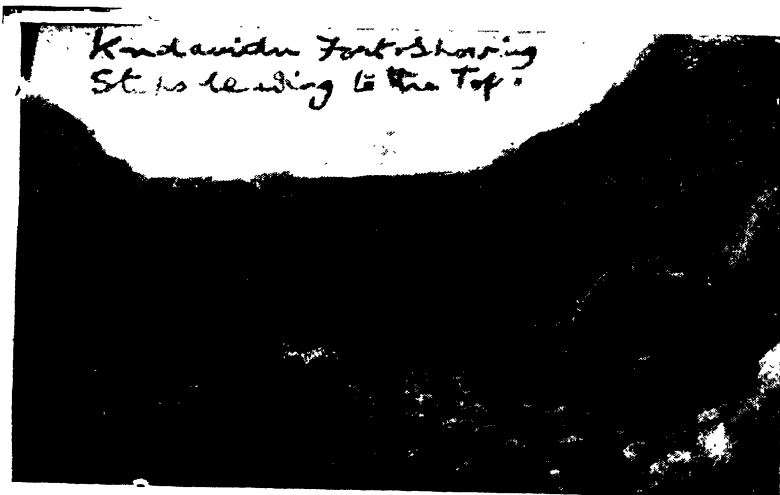 Kndavidu Fort showing
Steps leading to the Top.